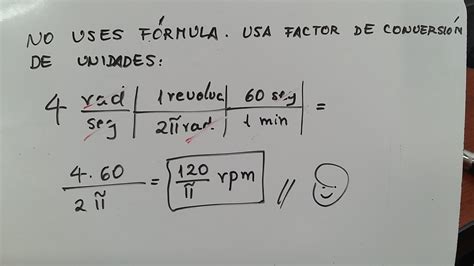 NO USES FÓRMULA. USA FACTOR DE CONVERSIÓN
DE UNIDADES:
4 rad/seg | 1 revoluc/2π rad. | 60 seg/1 min =
4.60/2π = 120/π rpm //